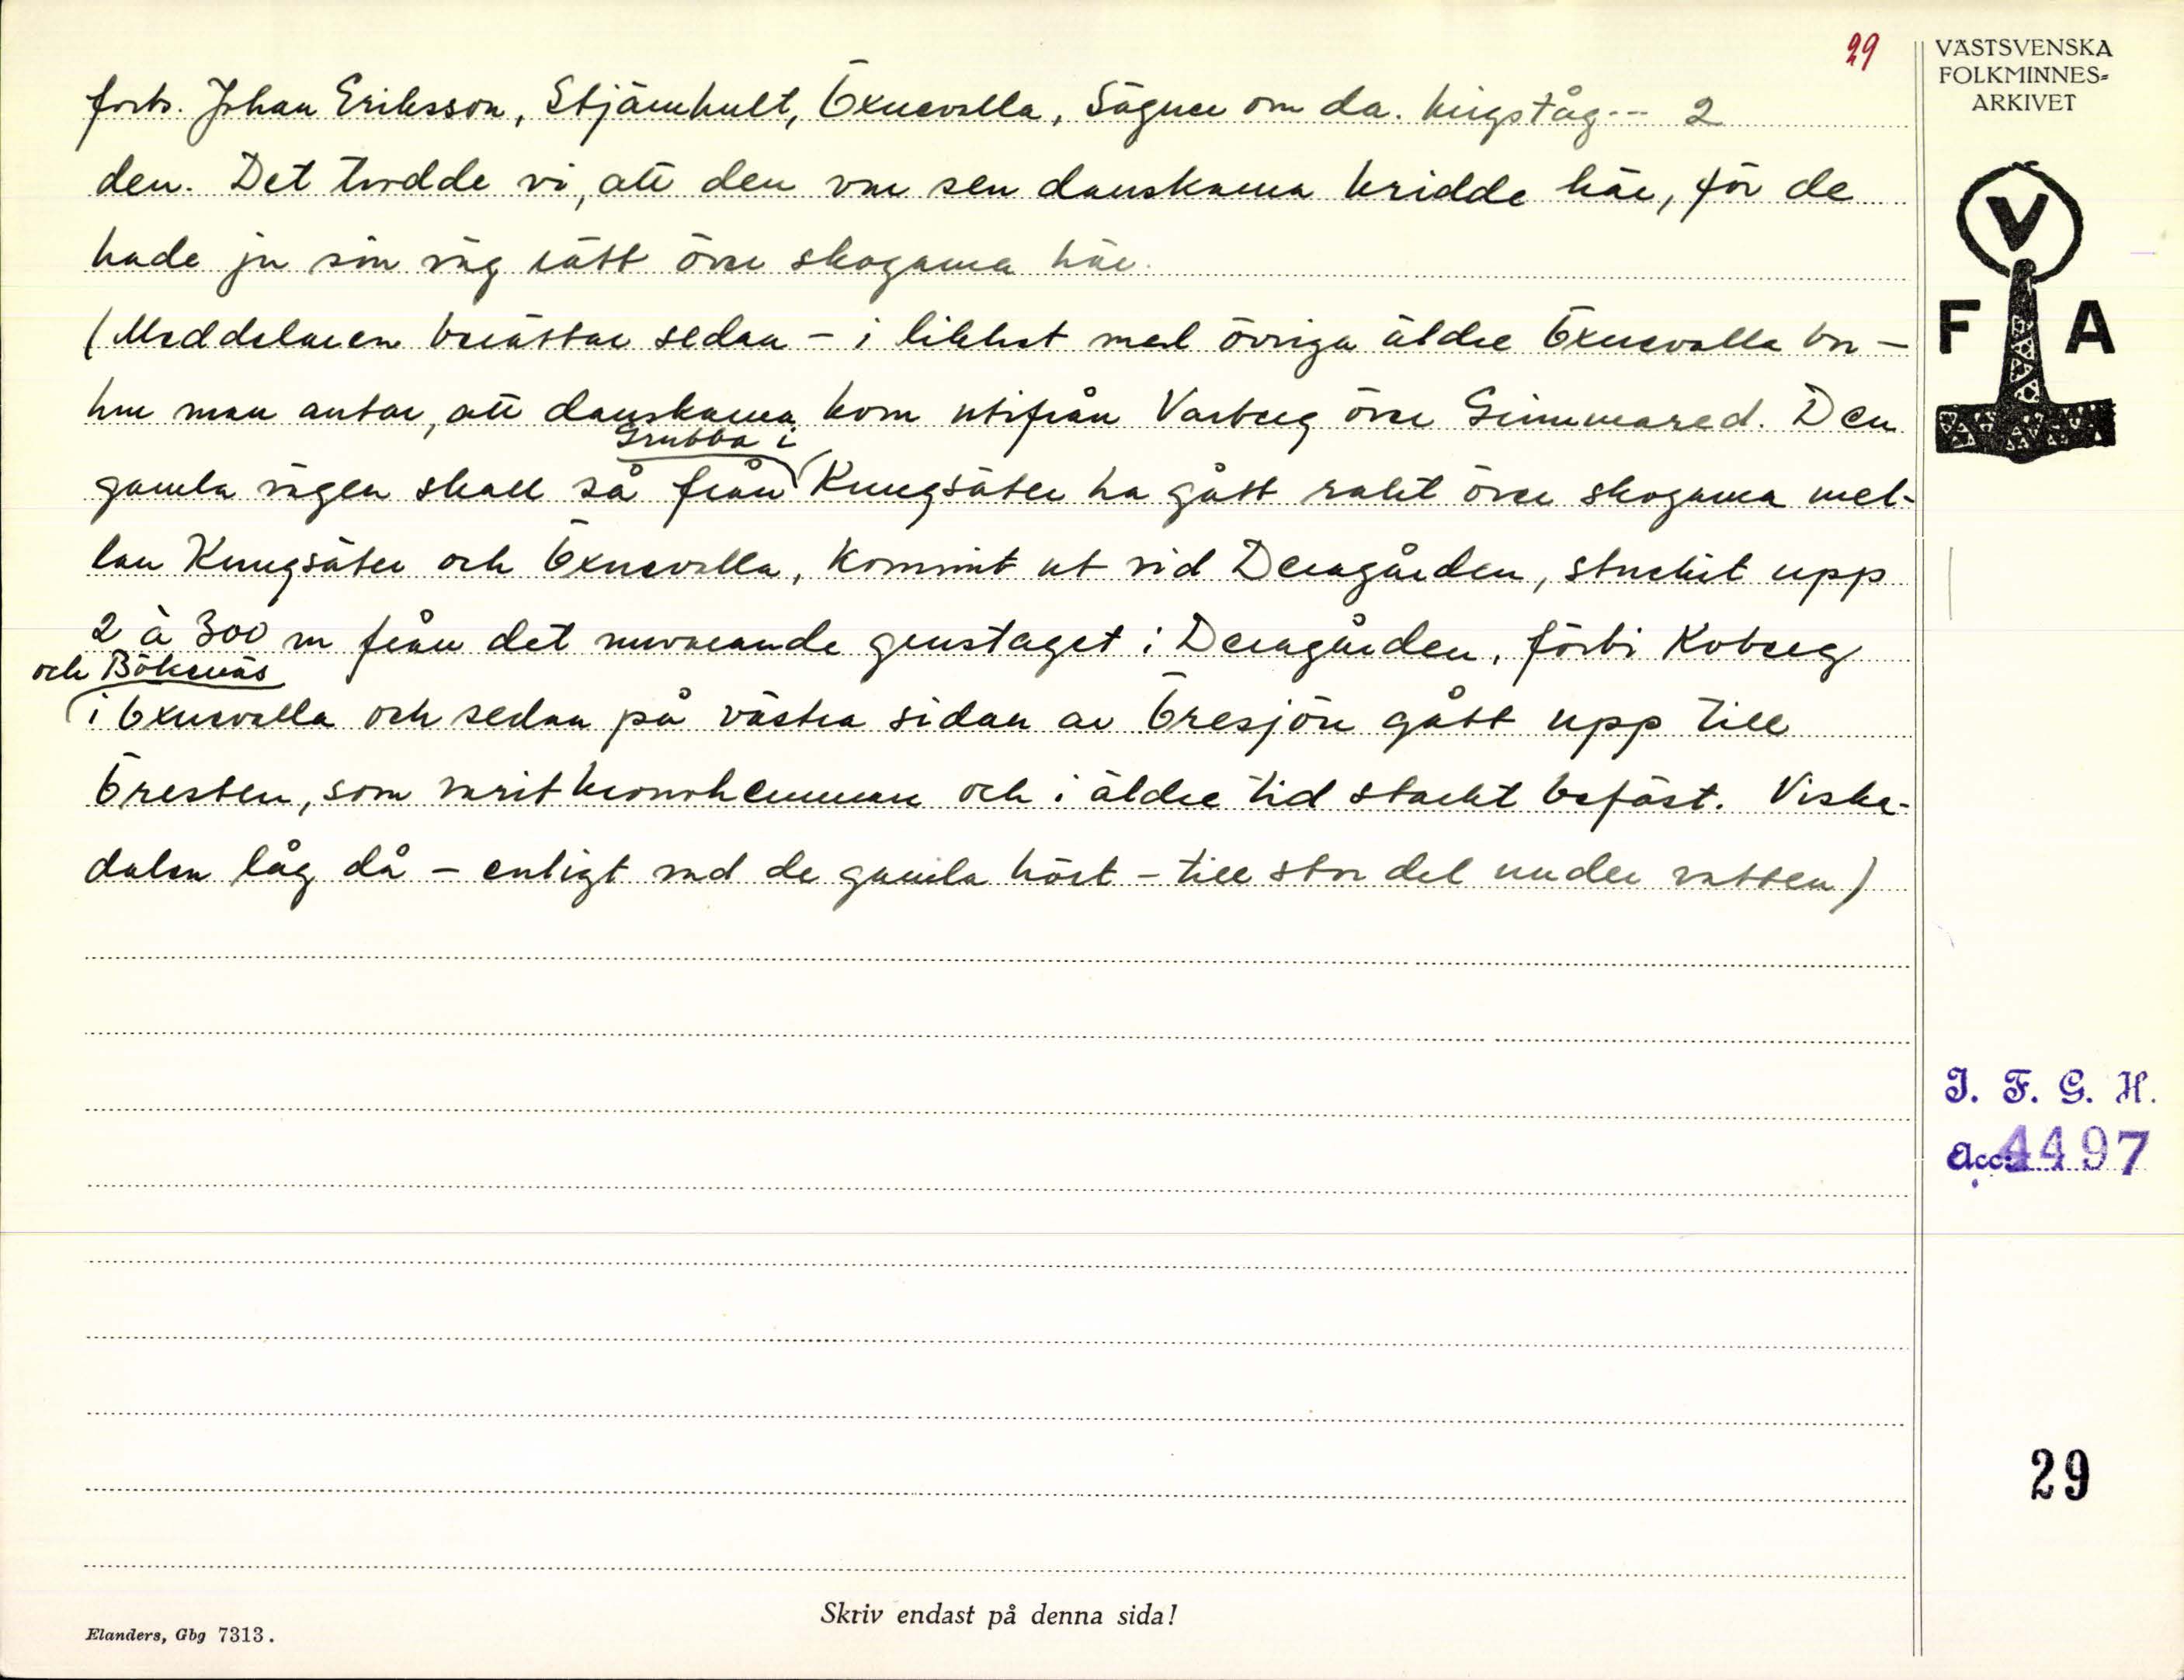 29
forts. Johan Eriksson, Stjärnhult, Öxnevalla, Sägner om da. krigståg -- 2
den. Det trodde vi, att den var sen danskarna kridde här, för de
hade ju sin väg rätt över skogarna här.
(Meddelaren berättar sedan - i likhet med övriga äldre Öxnevalla bor -
hur man antar, att danskarna kom utifrån Varberg över Grimmared. Den
Grubba i
gamla vägen skall så från Kungsäter ha gått rakt över skogarna mel-
lan Kungsäter och Öxnevalla, kommit ut vid Deragården, stuckit upp
2 à 300 m från det nuvarande grustaget i Deragården, förbi Koberg
och Bökenäs
i Öxnevalla och sedan på västra sidan av Öresjön gått upp till
Öresten, som varit kronohemman och i äldre tid starkt befäst. Viska-
dalen låg då - enligt vad de gamla hört - till stor del under vatten)
VÄSTSVENSKA
FOLKMINNES=
ARKIVET
V
F A
I. F. G. H.
Acc. 4497
29
Skriv endast på denna sida!
Elanders, Gbg 7313.